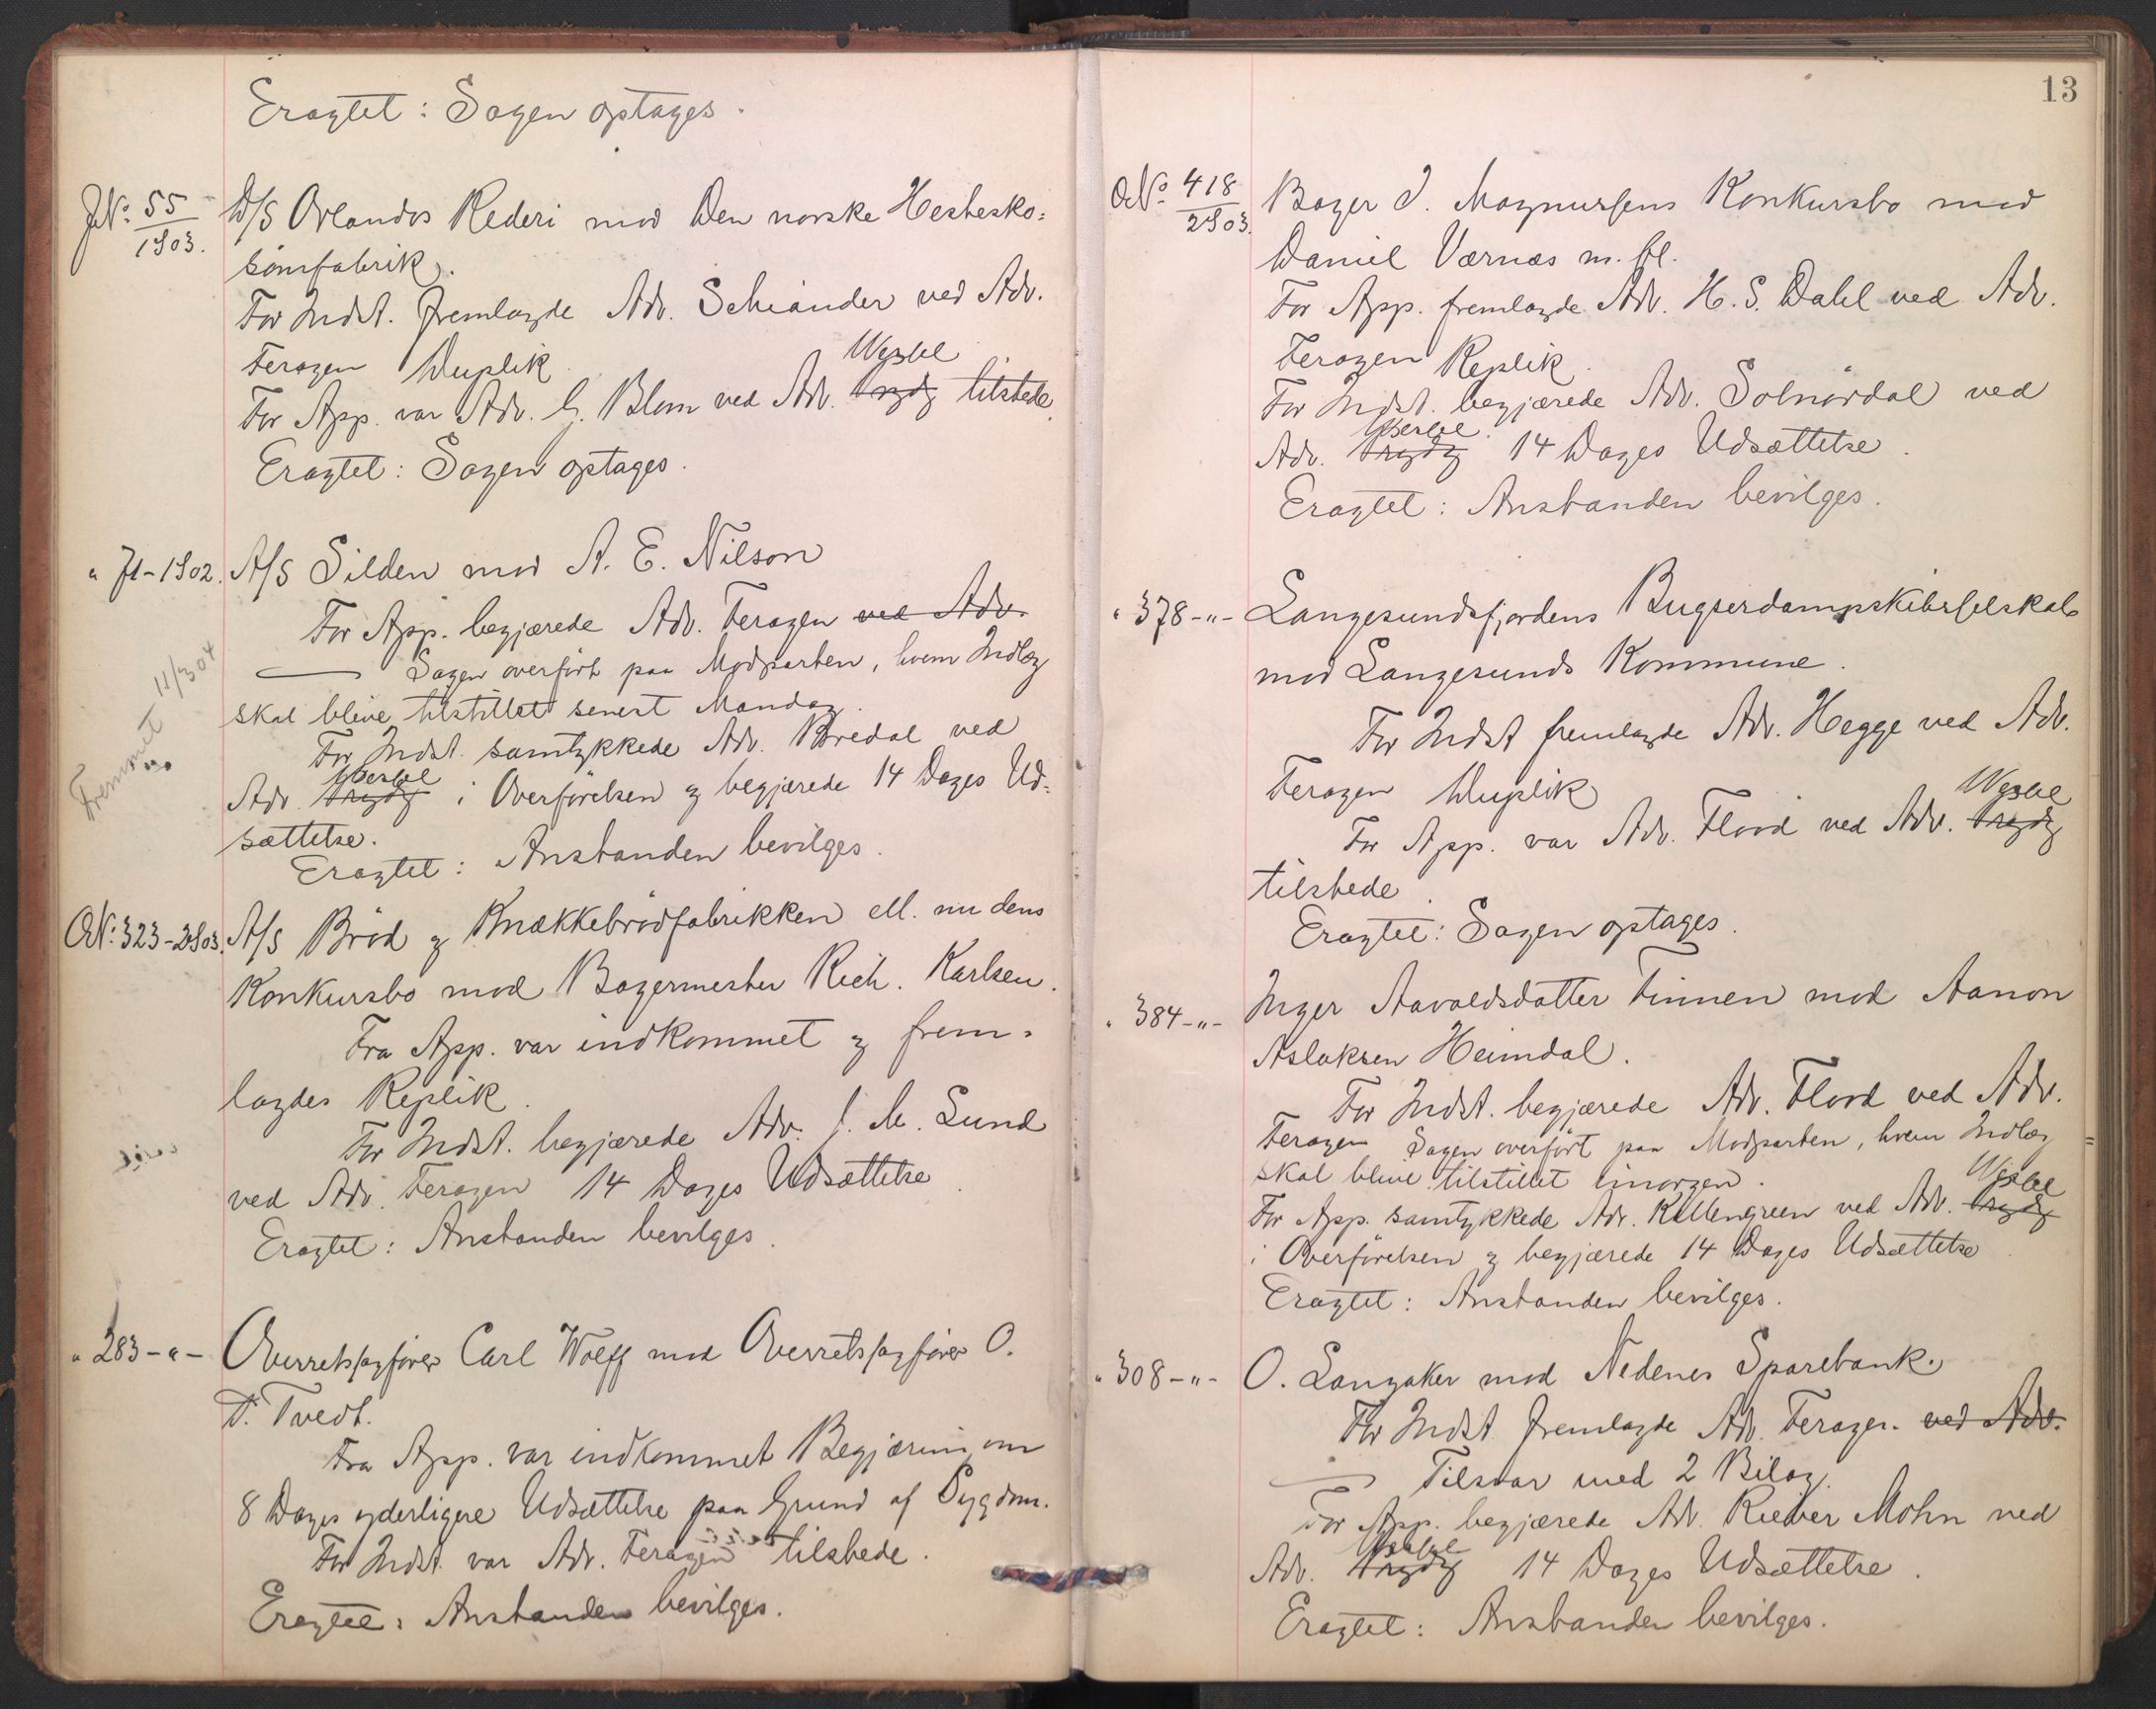 Eragtet: Sagen optages.
JN: 55/1903.
D/S Orlandos Rederi mod Den norske Hestesko=
sømfabrik.
For Indst. fremlagde Adv. Schiander ved Adv.
Feragen Duplik.
Wessel
For App. var Adv. G. Blom ved Adv. Brydg tilstede.
Eragtet: Sagen optages.
" 71-1902.
A/S Silden mod A. E. Nilson
For App. begjærede Adv. Feragen ved Adv.
Sagen overført paa Modparten, hvem Indlæg
skal blive tilstillet senest Mandag.
Fremmet 11/3 04
For Indst. samtykkede Adv. Bredal ved
Wessel
Adv. Brydg i Overførelsen og begjærede 14 Dages Ud=
sættelse.
Eragtet: Anstanden bevilges.
ON: 323-2903.
A/S Brød og Knækkebrødfabrikken ell. nu dens
Konkursbo mod Bagermester Rich. Karlsen.
Fra App. var indkommet og frem=
lagdes Replik.
For Indst. begjærede Adv. J. M. Lund
ved Adv. Feragen 14 Dages Udsættelse.
Eragtet: Anstanden bevilges.
" 283-"-
Overretssagfører Carl Wolff mod Overretssagfører O.
T. Tvedt.
Fra App. var indkommet Begjæring om
8 Dages yderligere Udsættelse paa Grund af Sygdom.
For Indst. var Adv. Feragen tilstede.
Eragtet: Anstanden bevilges.
13
ON: 418/2903.
Bager J. Magnussens Konkursbo mod
Daniel Værnæs m. fl.
For App. fremlagde Adv. H. S. Dahl ved Adv.
Feragen Replik.
For Indst. begjærede Adv. Solnørdal ved
Wessel
Adv. Brydg 14 Dages Udsættelse.
Eragtet: Anstanden bevilges.
" 378-"-
Langesundsfjordens Bugserdampskibsselskab
mod Langesunds Kommune.
For Indst fremlagde Adv. Hegge ved Adv.
Feragen Duplik
Wessel
For App. var Adv. Flood ved Adv. Brydg
tilstede.
Eragtet: Sagen optages.
" 384-"-
Inger Aavoldsdatter Finnen mod Aanon
Aslaksen Heimdal.
For Indst. begjærede Adv. Flood ved Adv.
Feragen Sagen overført paa Modparten, hvem Indlæg
skal blive tilstillet imorgen.
Wessel
For App. samtykkede Adv. Kallengreen ved Adv. Brydg
i Overførelsen og begjærede 14 Dages Udsættelse.
Eragtet: Anstanden bevilges.
" 308-"-
O. Langaker mod Nedenes Sparebank.
For Indst fremlagde Adv. Feragen ved Adv.
Tilsvar med 2 Bilag.
For App. begjærede Adv. Rieber Mohn ved
Wessel
Adv. Brydg 14 Dages Udsættelse.
Eragtet: Anstanden bevilges.